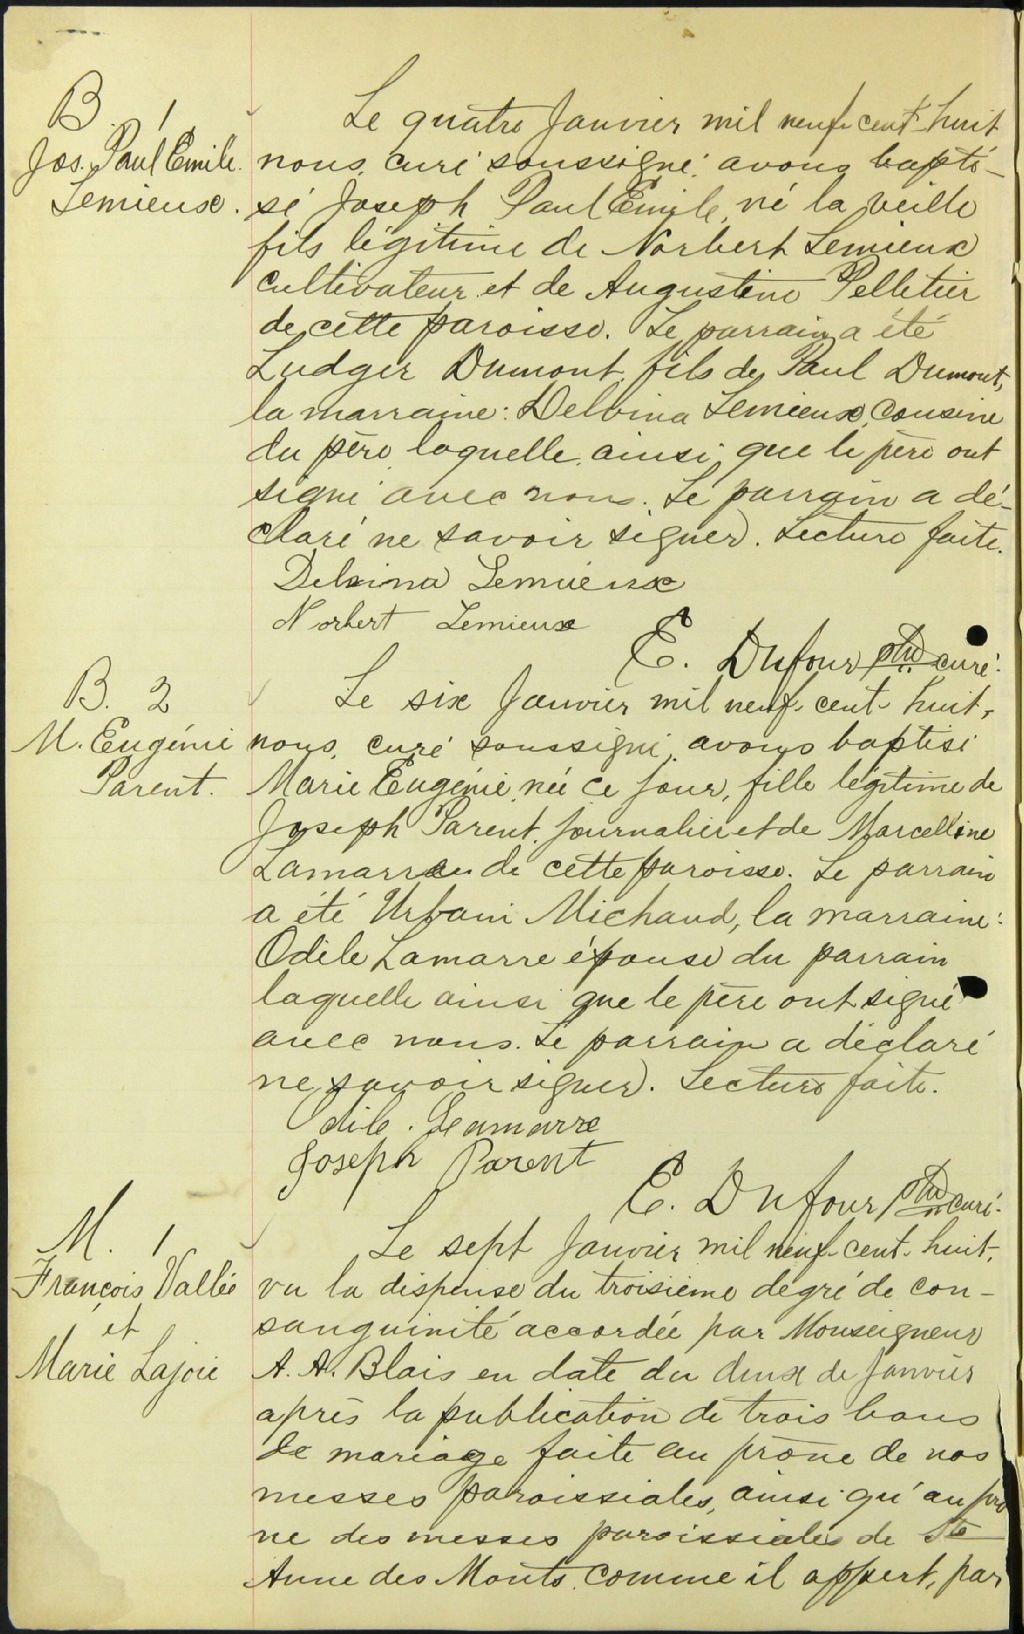 B. 1
Jos. Paul Emile
Lemieux.
Le quatre Janvier mil neuf cent huit
nous, curé soussigné, avons bapti-
sé Joseph Paul Emile, né la veille
fils légitime de Norbert Lemieux
cultivateur et de Augustine Pelletier
de cette paroisse. Le parrain a été
Ludger Dumont, fils de Paul Dumont,
la marraine: Delvina Lemieux, cousine
du père, laquelle, ainsi que le père ont
signé avec nous. Le parrain a dé-
claré ne savoir signer. Lecture faite.
Delvina Lemieux
Norbert Lemieux
E. Dufour ptre curé.
B. 2
M. Eugénie
Parent.
Le six Janvier mil neuf cent huit,
nous, curé soussigné, avons baptisé
Marie Eugénie, née ce jour, fille légitime de
Joseph Parent, journalier et de Marcelline
Lamarre de cette paroisse. Le parrain
a été Urbain Michaud, la marraine:
Odile Lamarre épouse du parrain
laquelle ainsi que le père ont signé
avec nous. Le parrain a déclaré
ne savoir signer. Lecture faite.
Odile Lamarre
Joseph Parent
E. Dufour ptre curé.
M. 1
François Vallée
et
Marie Lajoie
Le sept Janvier mil neuf cent huit,
vu la dispense du troisième degré de con-
sanguinité accordée par Monseigneur
A. A. Blais en date du deux de Janvier
après la publication de trois bans
de mariage faite au prône de nos
messes paroissiales, ainsi qu'au prô
ne des messes paroissiales de Ste
Anne des Monts, comme il appert, par